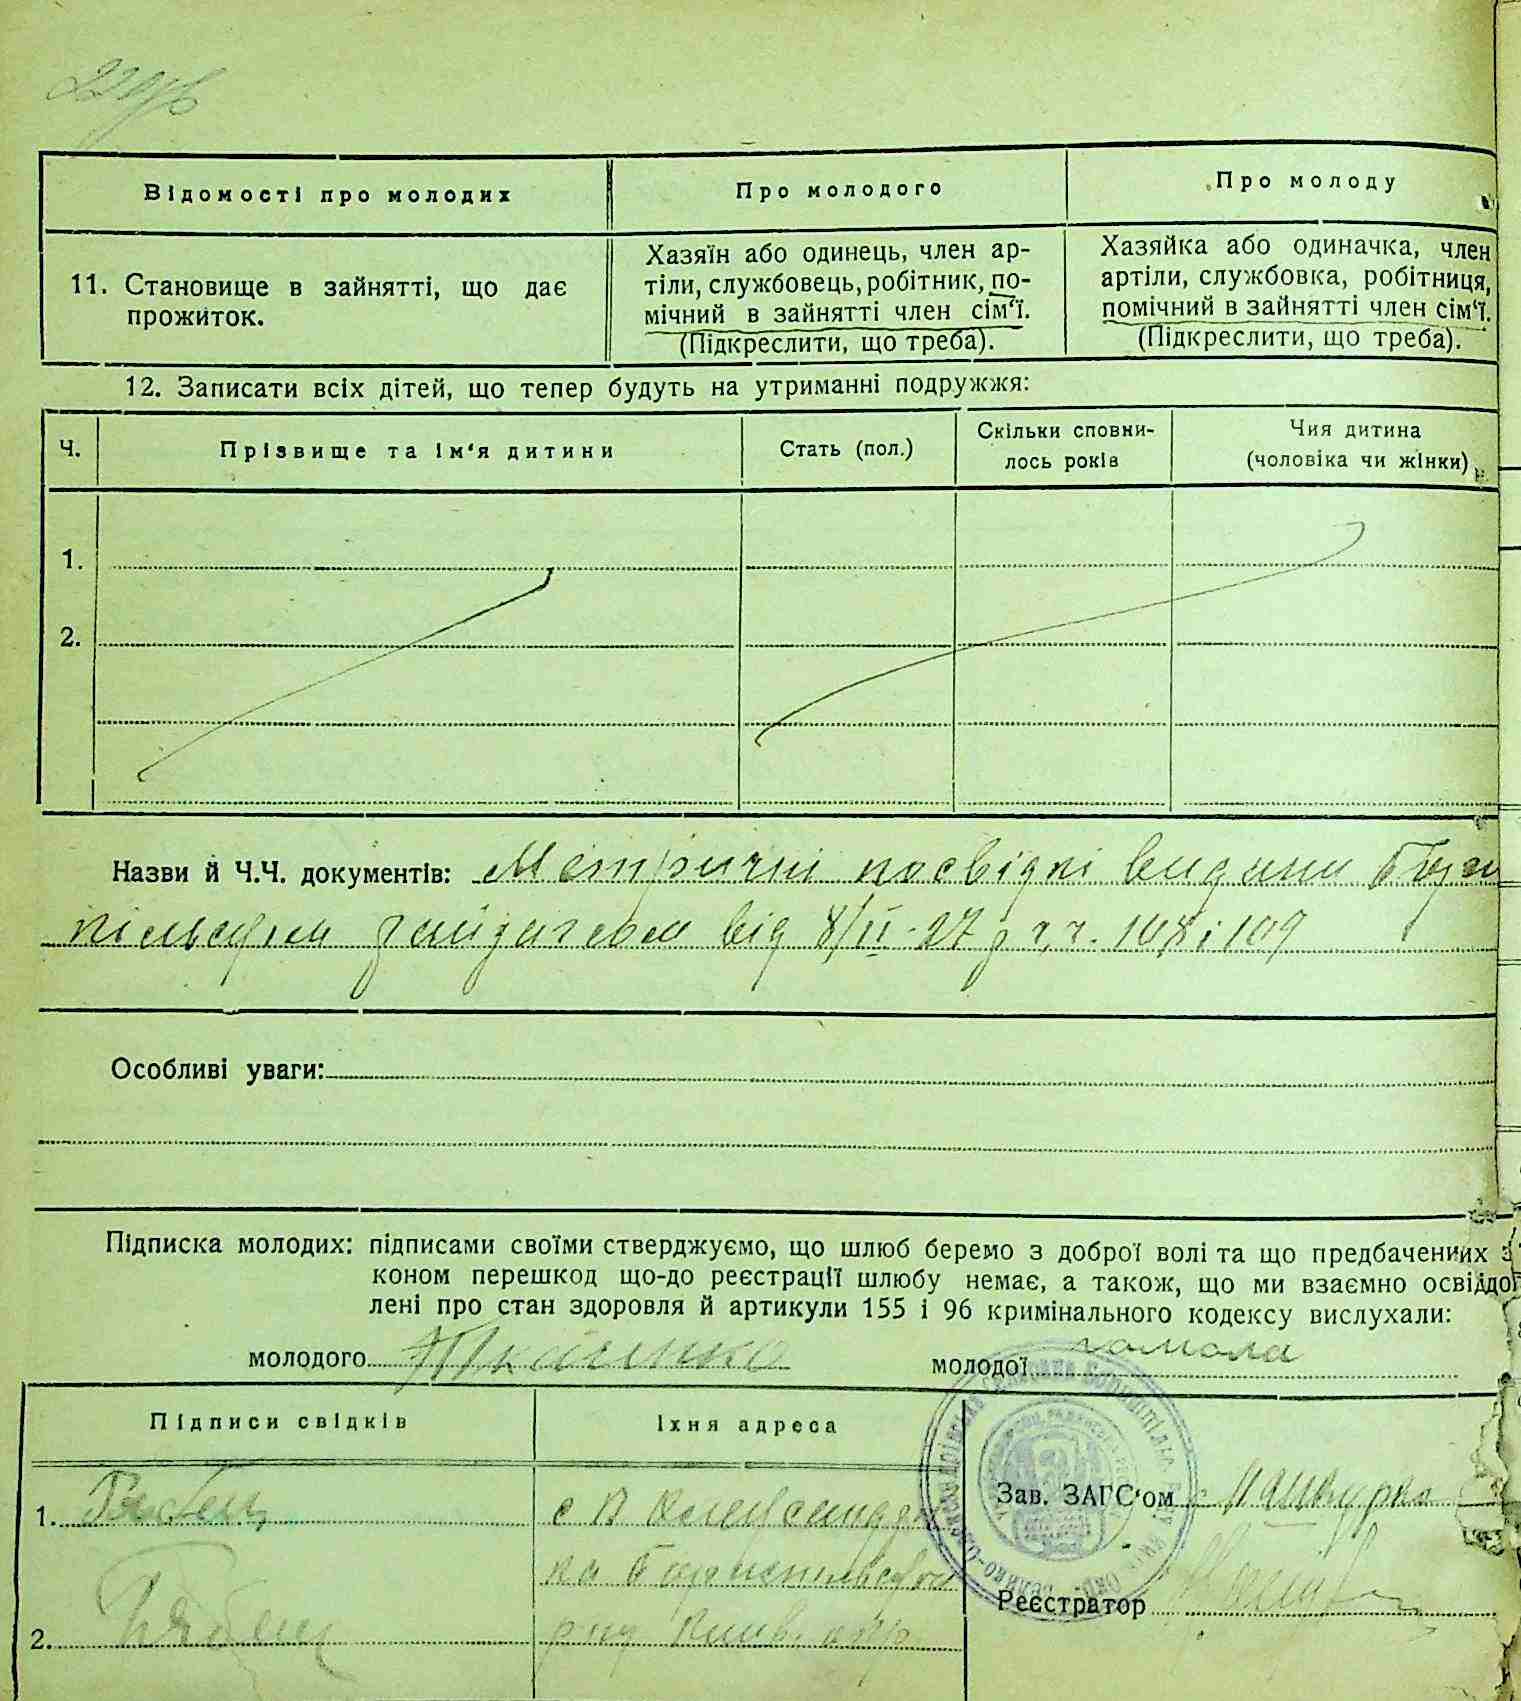 Відомості про молодих
Про молодого
Про молоду
11. Становище в зайнятті, що дає
прожиток.
Хазяїн або одинець, член ар-
тіли, службовець, робітник, по-
мічний в зайнятті член сім‘ї.
(Підкреслити, що треба).
Хазяйка або одиначка, член
артіли, службовка, робітниця,
помічний в зайнятті член сім‘ї.
(Підкреслити, що треба).
12. Записати всіх дітей, що тепер будуть на утриманні подружжя:
Ч.
Прізвище та ім‘я дитини
Стать (пол.)
Скільки сповни-
лось років
Чия дитина
(чоловіка чи жінки)
1.
2.
Назви й Ч.Ч. документів: Метричні посвідкі видани
від 8/II-27 р ч.ч. 108 і 109
Особливі уваги:
Підписка молодих: підписами своїми стверджуємо, що шлюб беремо з доброї волі та що предбачених за
коном перешкод що-до реєстрації шлюбу немає, а також, що ми взаємно освіддо
лені про стан здоровля й артикули 155 і 96 кримінального кодексу вислухали:
молодого Ткаченко
молодої
Підписи свідків
Їхня адреса
1. Рябец
с В Александров
ка Бориспільского
2. Рябец
рну Київ. окр
Зав. ЗАГС‘ом
Реєстратор